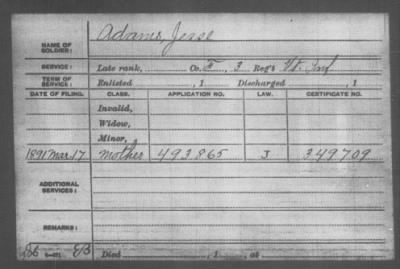 NAME OF SOLDIER: Adams, Jesse
SERVICE: Late rank, Co. 3 Reg't Vt. Inf
TERM OF SERVICE: Enlisted , 1 Discharged , 1
DATE OF FILING. CLASS. APPLICATION NO. LAW. CERTIFICATE NO.
Invalid,
Widow,
Minor,
1891 Mar. 17 mother 493865 J 349709
ADDITIONAL SERVICES:
REMARKS:
Died , 1 , at